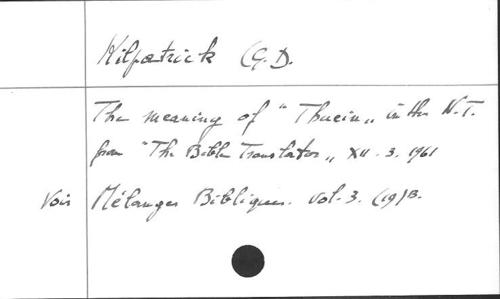 Kilpatrick (G.D.
The meaning of "Thuein„ in the N.T.
from "The Bible Translator„ XII . 3. 1961
Voir Mélanges Bibliques. Vol. 3. (19)B.